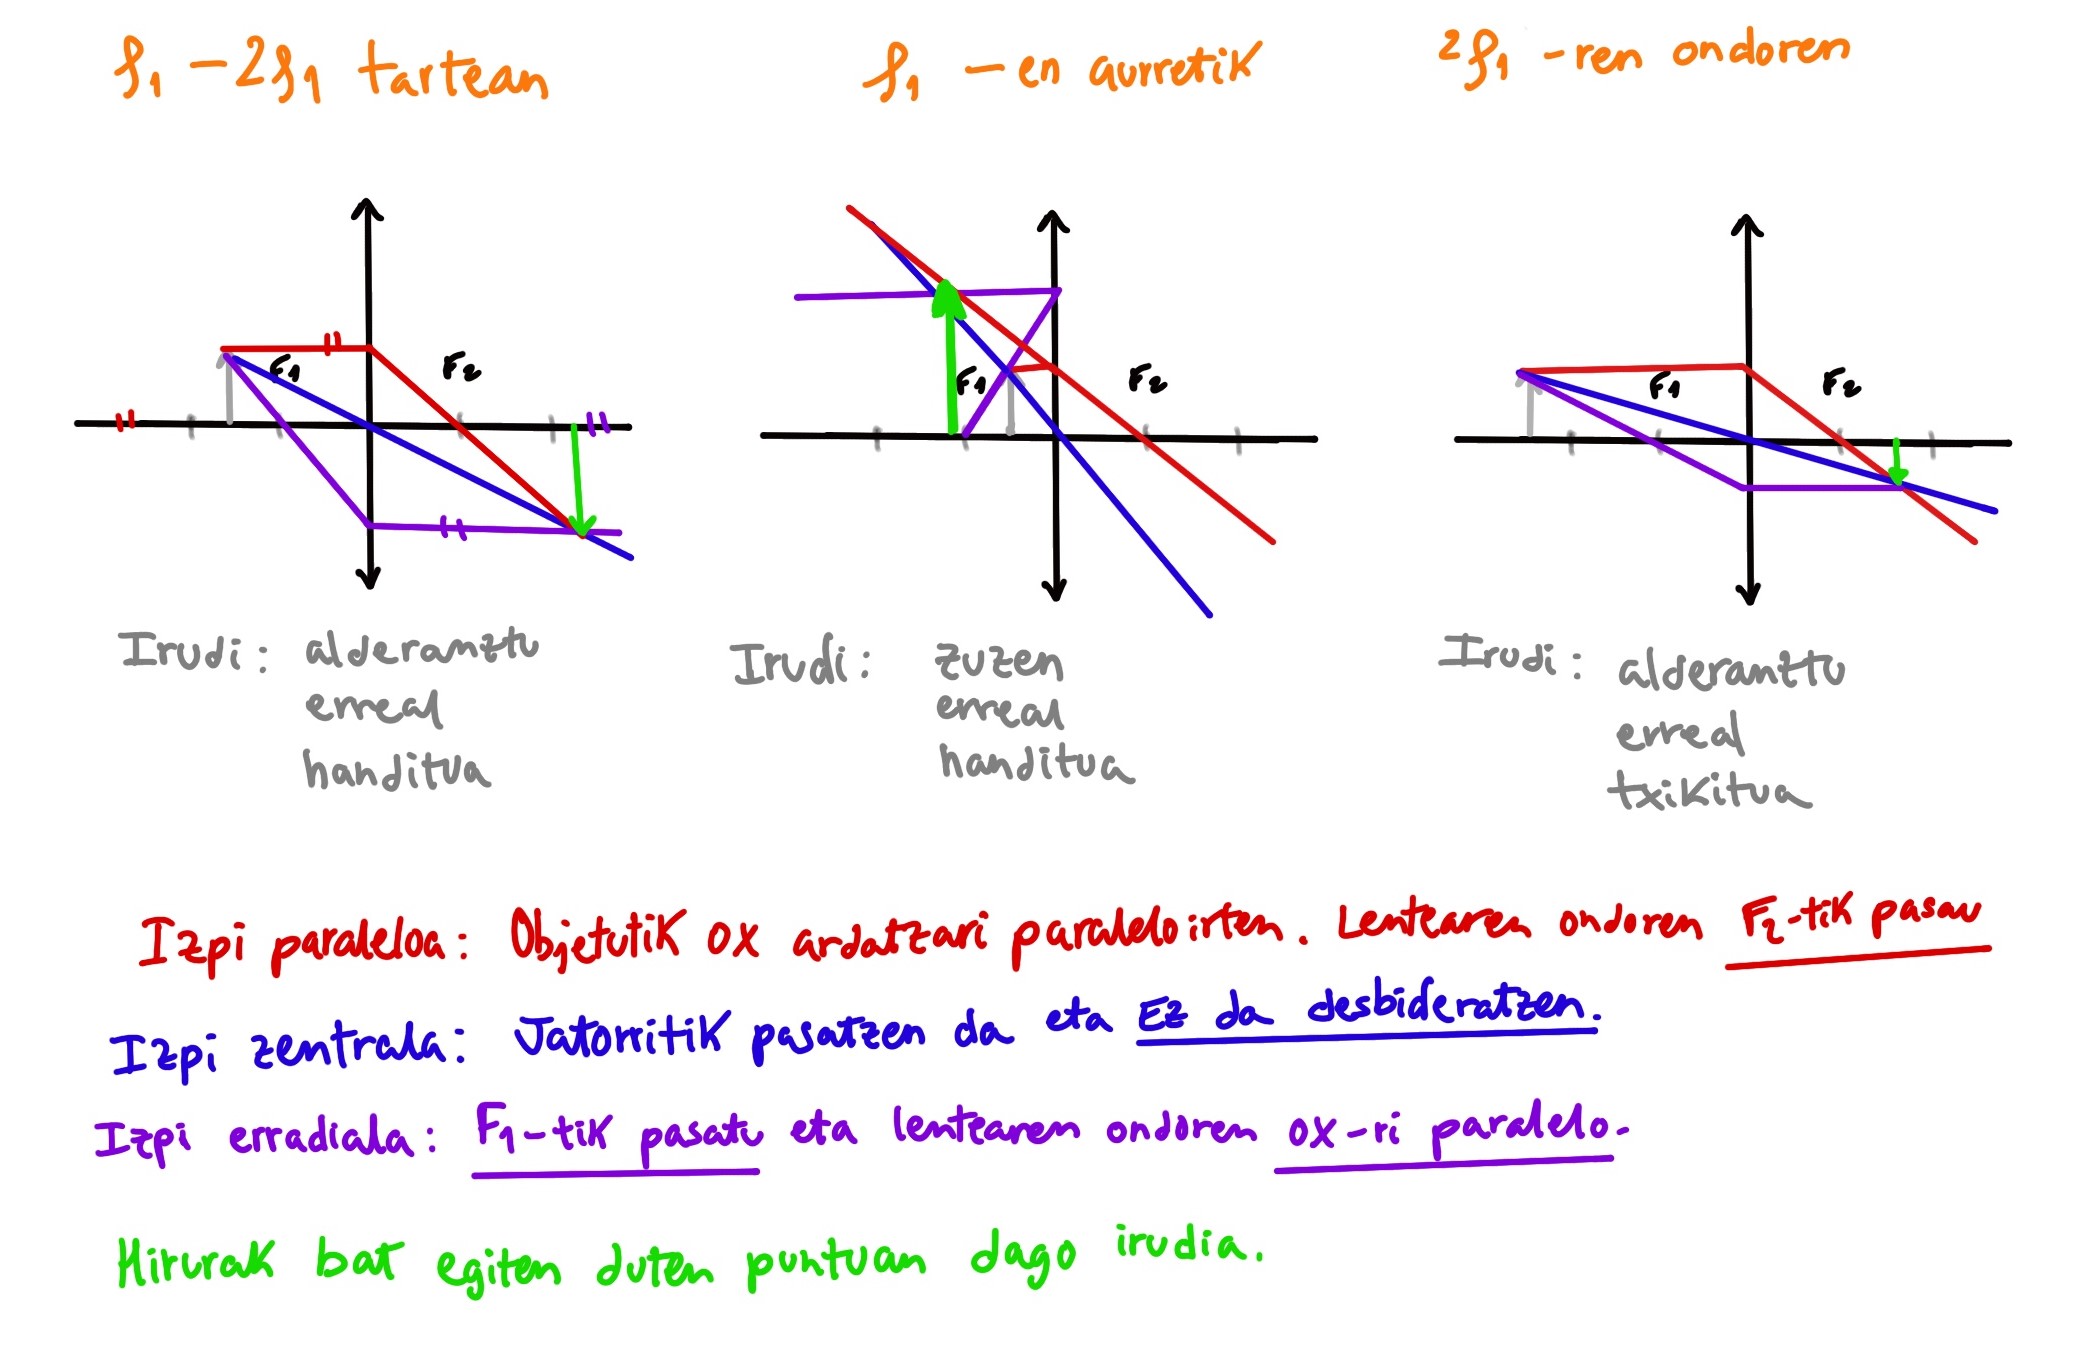 f₁ - 2f₁ tartean
f₁ - en aurretik
2f₁ - ren ondoren
F₁
F₂
F₁
F₂
F₁
F₂
Irudi: alderanztu
erreal
handitua
Irudi: zuzen
erreal
handitua
Irudi: alderanztu
erreal
txikitua
Izpi paraleloa: Objetutik OX ardatzari paralelo irten. Lentearen ondoren F₂-tik pasau
Izpi zentrala: Jatorritik pasatzen da eta EZ da desbideratzen.
Izpi erradiala: F₁-tik pasatu eta lentearen ondoren OX-ri paralelo.
Hirurak bat egiten duten puntuan dago irudia.